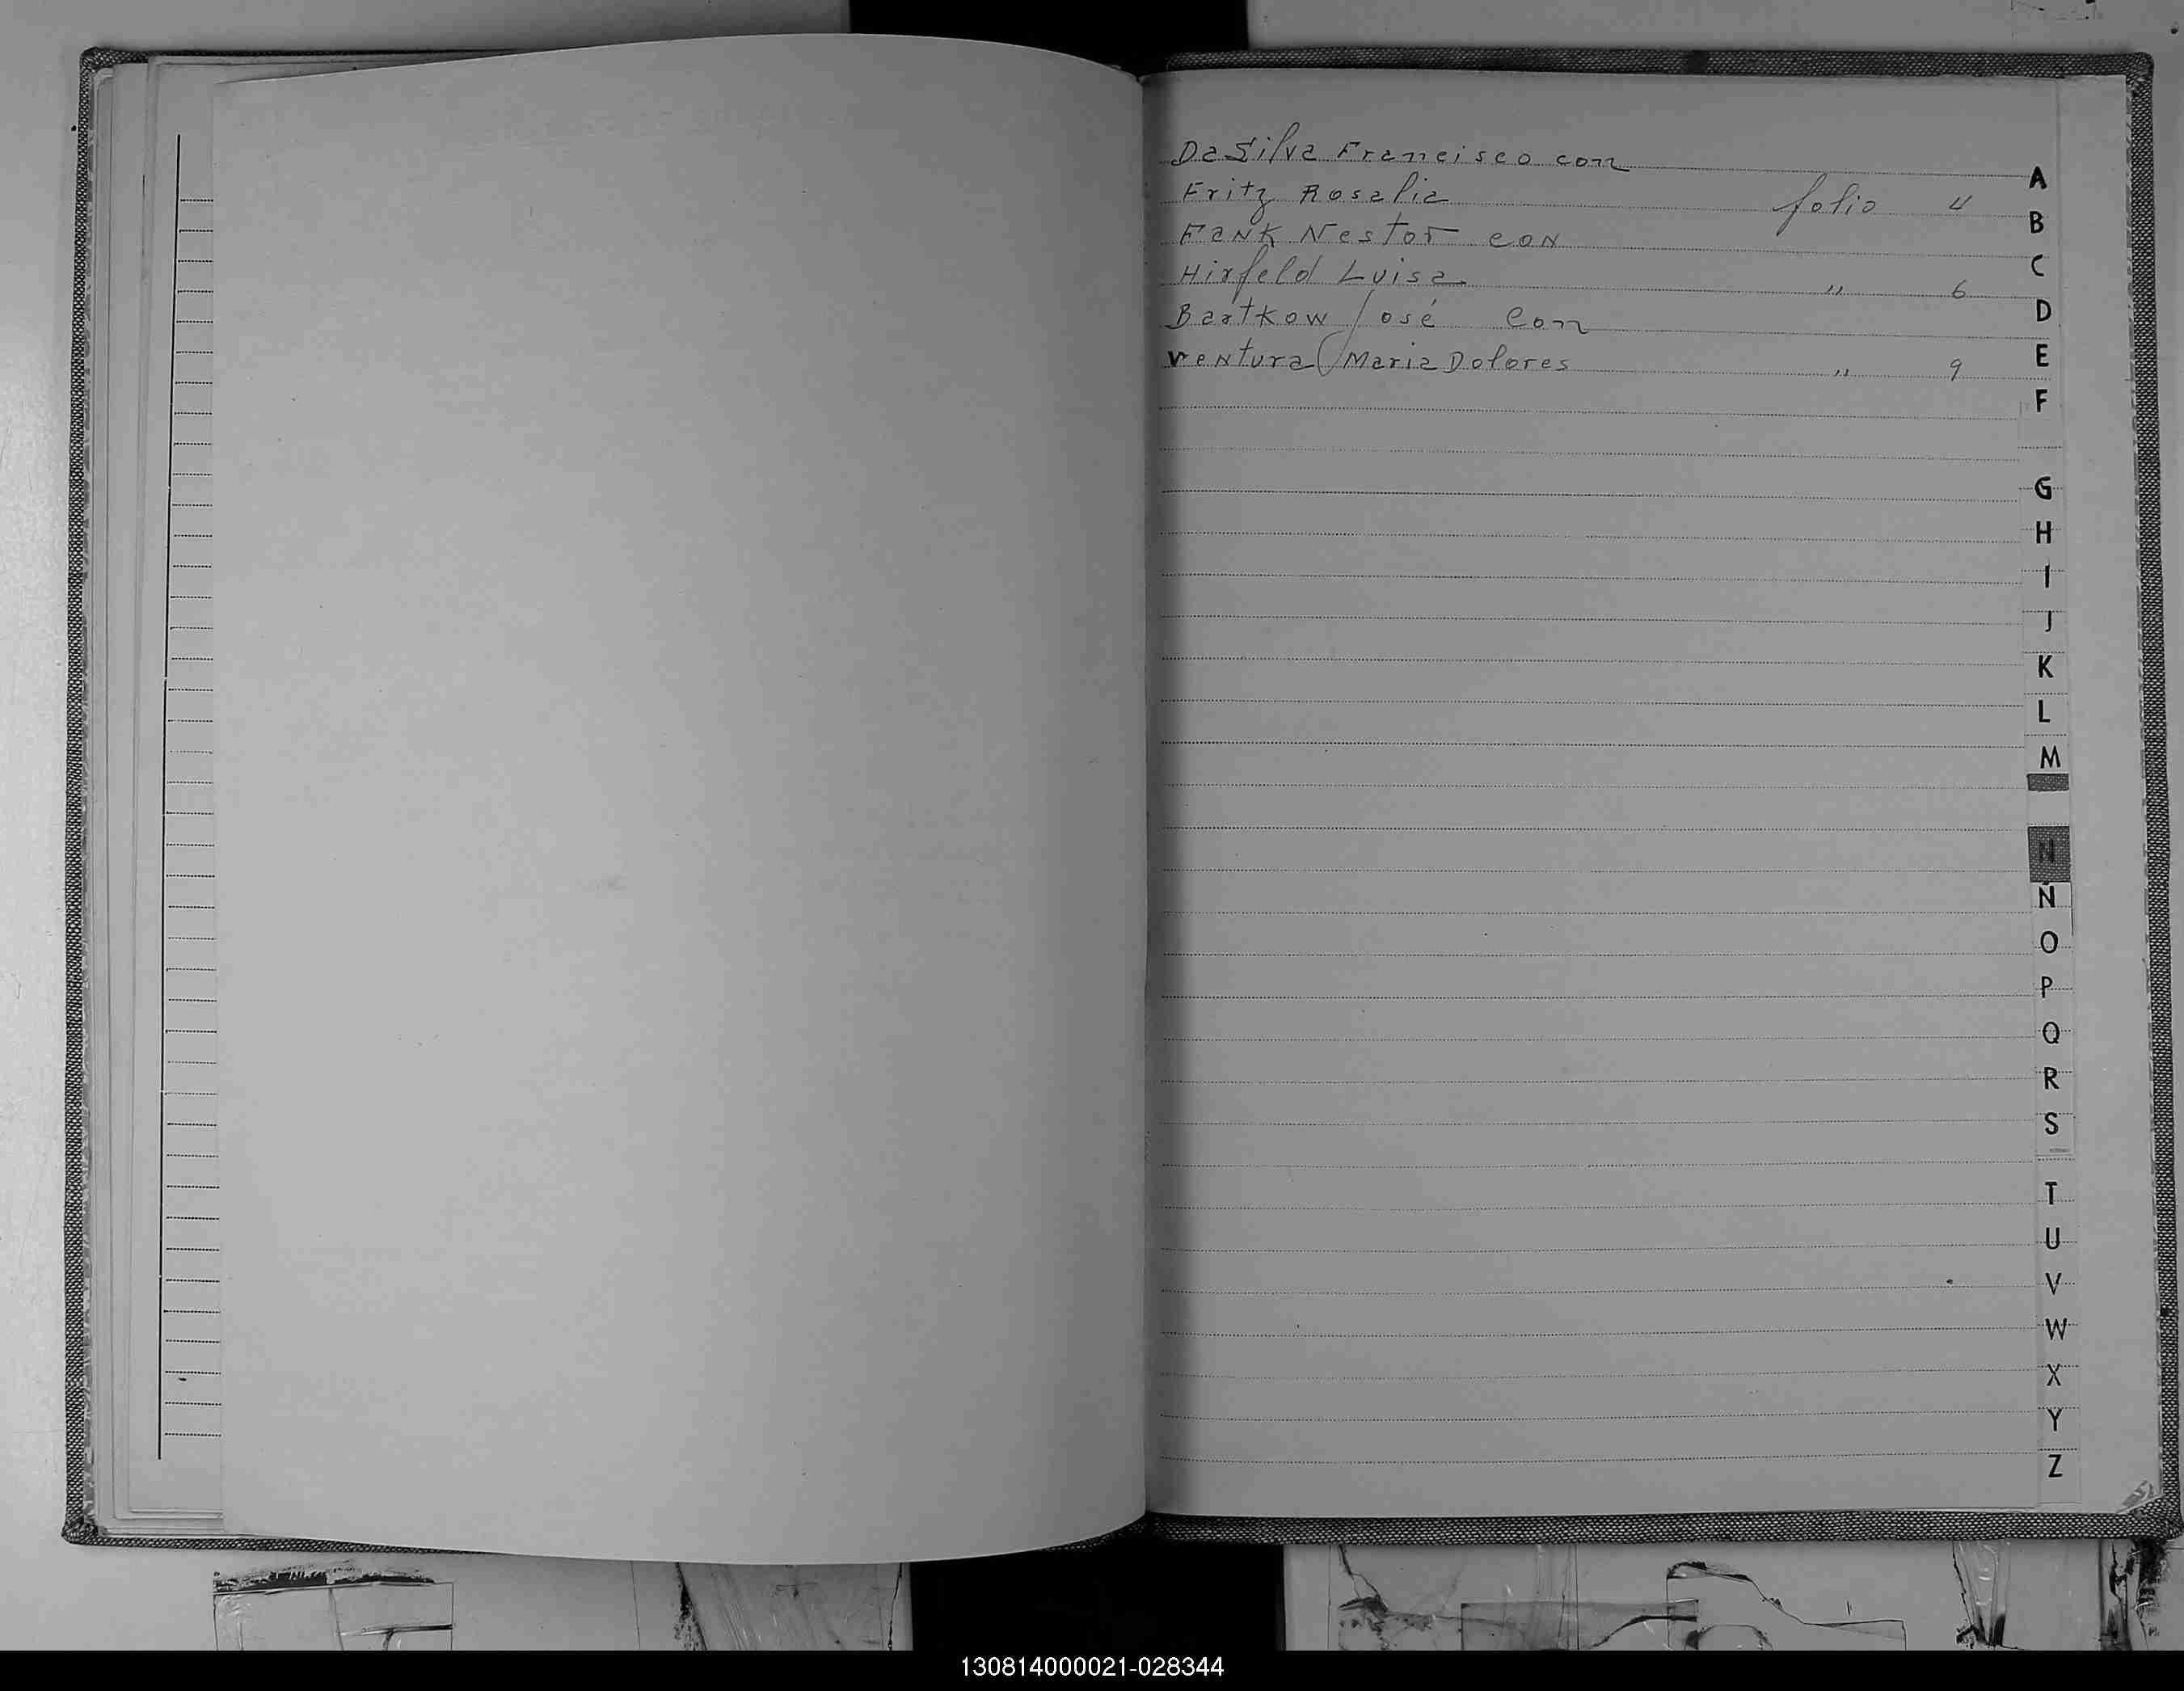 DaSilva Francisco con
Fritz Rosalia folio 4
Fank Nestor con
Hirfeld Luisa " 6
Bartkow José con
Ventura Maria Dolores " 9
A
B
C
D
E
F
G
H
I
J
K
L
M
N
Ñ
O
P
Q
R
S
T
U
V
W
X
Y
Z
130814000021-028344